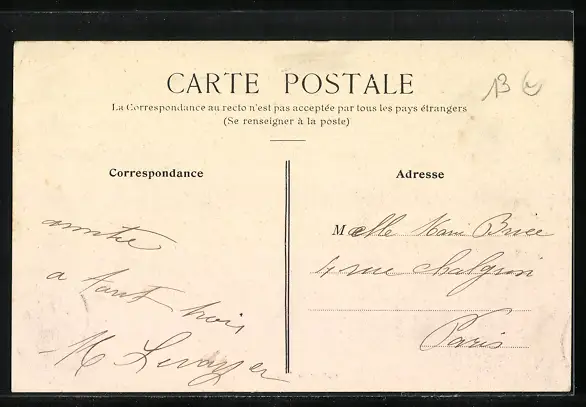 CARTE POSTALE
La Correspondance au recto n'est pas acceptée par tous les pays étrangers
(Se renseigner à la poste)
Correspondance
Adresse
amitié
a tous trois
M Levoyer
Melle Marie Brice
4 rue Chalgrin
Paris